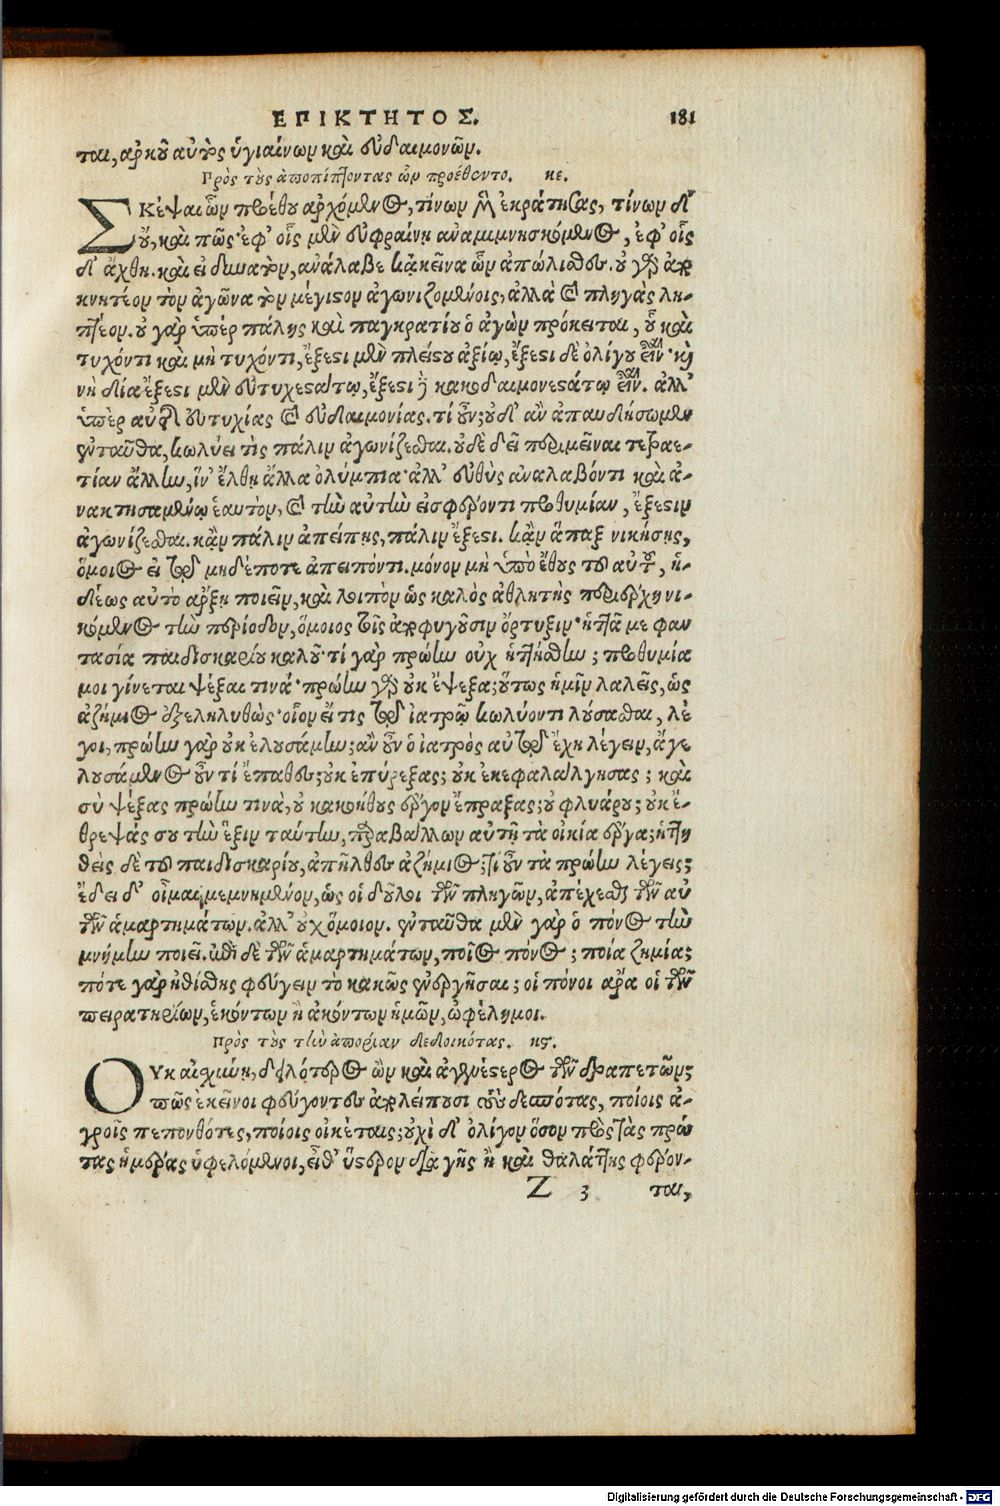 ΕΠΙΚΤΗΤΟΣ. 181
ται, ἀρκοῦ αὐτοῖς ὑγιαίνων καὶ εὐδαιμονῶν.
Πρὸς τοὺς ἀποπίπτοντας ὧν προέθεντο. κε.
Σκέψαι ὧν προέθου ἀρχόμενος, τίνων μὲν ἐκράτησας, τίνων δ'
οὔ, καὶ πῶς ἐφ' οἷς μὲν εὐφραίνῃ ἀναμιμνησκόμενος, ἐφ' οἷς
δ' ἄχθῃ. καὶ εἰ δυνατὸν, ἀνάλαβε κἀκεῖνα ὧν ἀπώλισθες. οὐ γὰρ ἀπο
κνητέον τὸν ἀγῶνα τὸν μέγιστον ἀγωνιζομένοις, ἀλλὰ καὶ πληγὰς λη-
πτέον. οὐ γὰρ ὑπὲρ πάλης καὶ παγκρατίου ὁ ἀγὼν πρόκειται, οὗ καὶ
τυχόντι καὶ μὴ τυχόντι, ἔξεστι μὲν πλείστου ἀξίῳ, ἔξεστι δὲ ὀλίγου εἶναι· καὶ
νὴ δία ἔξεστι μὲν εὐτυχεστάτῳ, ἔξεστι δὲ κακοδαιμονεστάτῳ εἶναι. ἀλλ'
ὑπὲρ αὐτῆς εὐτυχίας καὶ εὐδαιμονίας. τί οὖν; οὐδ' ἂν ἀπαυδήσωμεν
ἐνταῦθα, κωλύει τὶς πάλιν ἀγωνίζεσθαι. οὐδὲ δεῖ περιμεῖναι τετραε-
τίαν ἄλλην, ἵν' ἔλθῃ ἄλλα ὀλύμπια· ἀλλ' εὐθὺς ἀναλαβόντι καὶ ἀ-
νακτησαμένῳ ἑαυτὸν, καὶ τὴν αὐτὴν εἰσφέροντι προθυμίαν, ἔξεστιν
ἀγωνίζεσθαι. κἂν πάλιν ἀπείπῃς, πάλιν ἔξεστι. κἂν ἅπαξ νικήσῃς,
ὅμοιος εἶ τῷ μηδέποτε ἀπειπόντι. μόνον μὴ ὑπὸ ἔθους τοῦ αὐτοῦ, ἡ-
δέως αὐτὸ ἄρξῃ ποιεῖν, καὶ λοιπὸν ὡς καλὸς ἀθλητὴς περιέρχῃ νι-
κόμενος τὴν περίοδον, ὅμοιος τοῖς ἀποφυγοῦσιν ὄρτυξιν· ἡττᾷ με φαν
τασία παιδισκαρίου καλοῦ· τί γὰρ πρώην οὐχ ἡττήθην; προθυμία
μοι γίνεται ψέξαι τινά· πρώην γὰρ οὐκ ἔψεξα; οὕτως ἡμῖν λαλεῖς, ὡς
ἀζήμιος ἐξεληλυθὼς· οἷον εἴ τις τῷ ἰατρῷ κωλύοντι λούσασθαι, λέ
γοι, πρώην γὰρ οὐκ ἐλουσάμην; ἂν οὖν ὁ ἰατρὸς αὐτῷ ἔχῃ λέγειν, ἄγε
λουσάμενος οὖν τί ἔπαθες; οὐκ ἐπύρεξας; οὐκ ἐκεφαλάλγησας; καὶ
σὺ ψέξας πρώην τινὰ, οὐ κακοήθους ἔργον ἔπραξας; οὐ φλυάρου; οὐκ ἔ-
θρεψάς σου τὴν ἕξιν ταύτην, παραβάλλων αὐτῇ τὰ οἰκία ἔργα; ἡττη
θεὶς δὲ τοῦ παιδισκαρίου, ἀπῆλθες ἀζήμιος; τί οὖν τὰ πρώην λέγεις;
ἔδει δ' οἶμαι μεμνημένον, ὡς οἱ δοῦλοι τῶν πληγῶν, ἀπέχεσθαι τῶν αὐ
τῶν ἁμαρτημάτων. ἀλλ' οὐχ ὅμοιον. ἐνταῦθα μὲν γὰρ ὁ πόνος τὴν
μνήμην ποιεῖ. ἐπὶ δὲ τῶν ἁμαρτημάτων, ποῖος πόνος; ποία ζημία;
πότε γὰρ ἠθίσθης φεύγειν τὸ κακῶς ἐνεργῆσαι; οἱ πόνοι ἄρα οἱ τῶν
πειρατηρίων, ἑκόντων ἢ ἀκόντων ἡμῶν, ὠφέλημοι.
Πρὸς τοὺς τὴν ἀπορίαν δεδοικότας. κϛ.
Οὐκ αἰσχύνῃ, δειλότερος ὢν καὶ ἀγενέστερος τῶν δραπετῶν;
πῶς ἐκεῖνοι φεύγοντες ἀπολείπουσι τοὺς δεσπότας, ποίοις ἀ-
γροῖς πεποιθότες, ποίοις οἰκέταις; οὐχὶ δ' ὀλίγον ὅσον πρὸς τὰς πρώ
τας ἡμέρας ὑφελόμενοι, εἶθ' ὕστερον διὰ γῆς ἢ καὶ θαλάττης φέρον-
Z 3 ται,
Digitalisierung gefördert durch die Deutsche Forschungsgemeinschaft - DFG